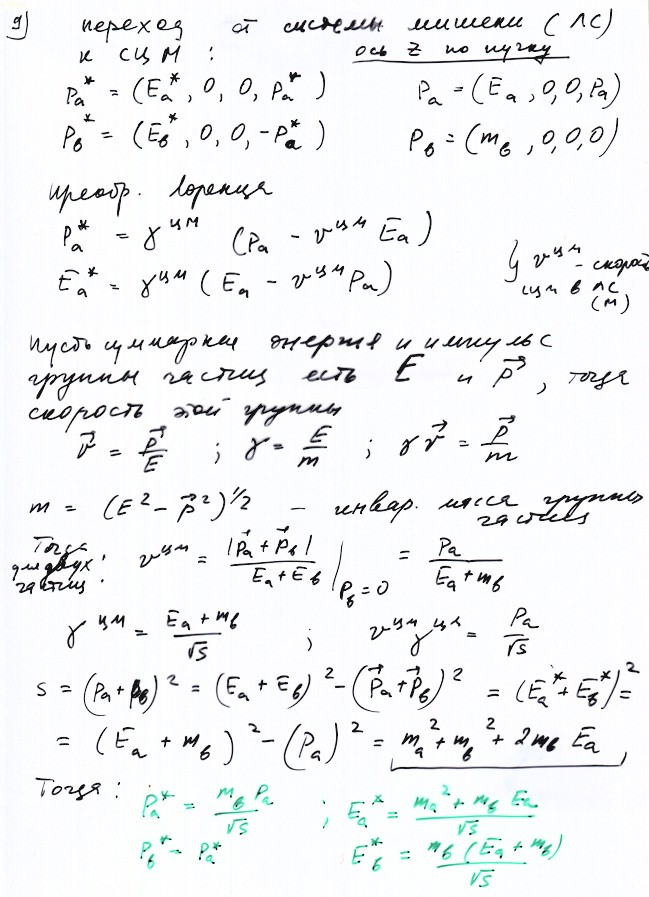 9) переход от системы мишени (ЛС)
к СЦМ : ось Z по пучку
Pa* = (Ea*, 0, 0, Pa*) Pa = (Ea, 0, 0, Pa)
Pв* = (Eв*, 0, 0, -Pa*) Pв = (mв, 0, 0, 0)
преобр. Лоренца
Pa* = γ^цм (Pa - v^цм Ea)
Ea* = γ^цм (Ea - v^цм Pa) } v^цм - скорость
цм в ЛС
(М)
Пусть суммарная энергия и импульс
группы частиц есть E и p⃗, тогда
скорость этой группы
v⃗ = p⃗/E ; γ = E/m ; γv⃗ = p⃗/m
m = (E² - p⃗²)^1/2 - инвар. масса группы
частиц
Тогда для двух частиц: v^цм = |P⃗a + P⃗в| / (Ea + Eв) |Pв=0 = Pa / (Ea + mв)
γ^цм = (Ea + mв)/√s ; v^цм γ^цм = Pa/√s
s = (Pa + Pв)² = (Ea + Eв)² - (P⃗a + P⃗в)² = (Ea* + Eв*)² =
= (Ea + mв)² - (Pa)² = ma² + mв² + 2mв Ea
Тогда : Pa* = mв Pa/√s ; Ea* = (ma² + mв Ea)/√s
Pв* - Pa* Eв* = mв (Ea + mв)/√s